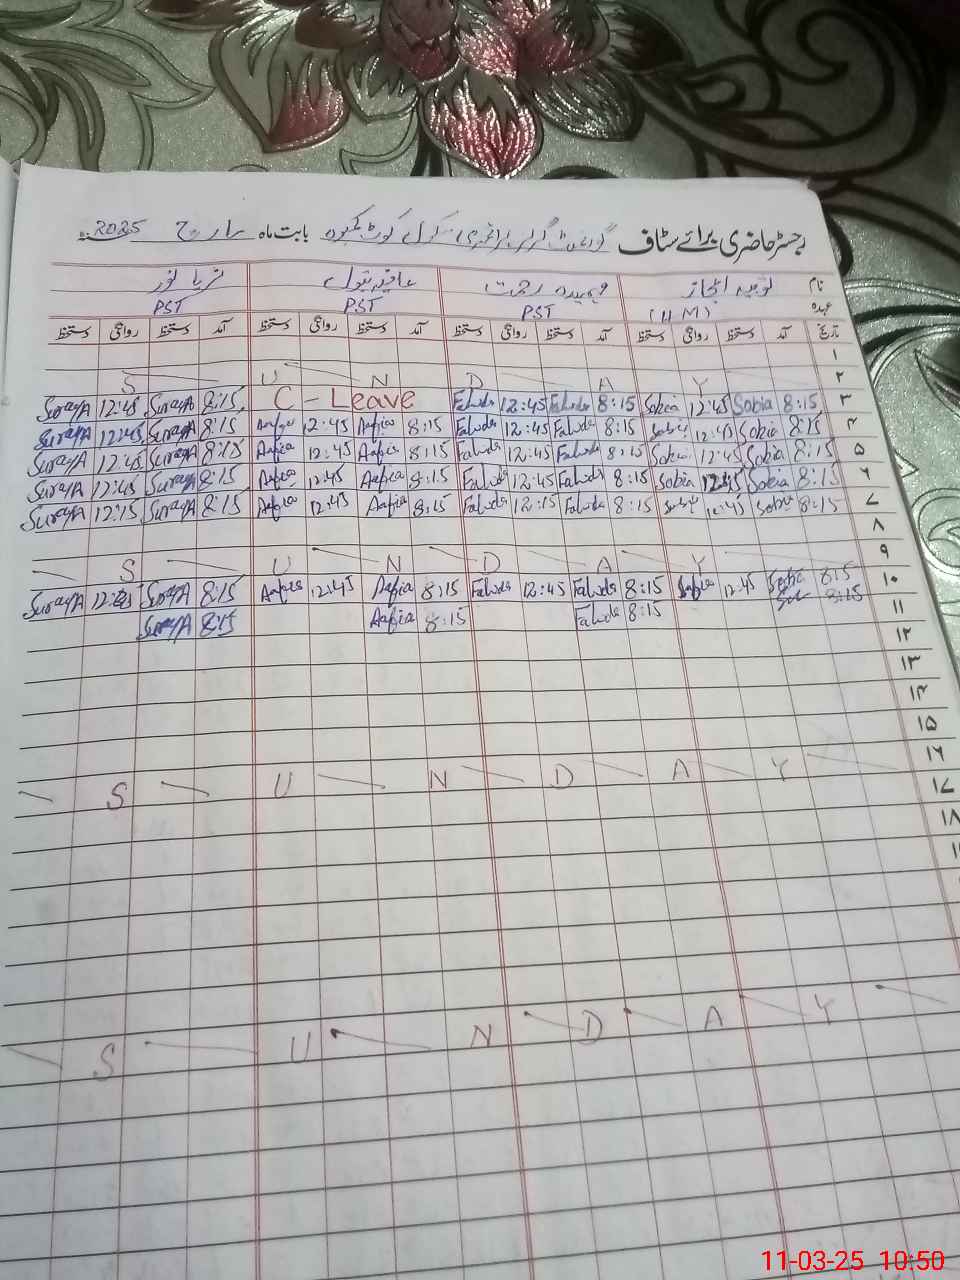 رجسٹر حاضری برائے سٹاف گورنمنٹ گرلز پرائمری سکول کوٹ بابت ماہ مارچ 2025ء
نام ثوبیہ اعجاز فہمیدہ رحمت عافیہ بتول ثریا نور
عہدہ (H.M) PST PST PST
تاریخ آمد دستخط روانگی دستخط آمد دستخط روانگی دستخط آمد دستخط روانگی دستخط آمد دستخط روانگی دستخط
۱
۲ S U N D A Y
۳ 8:15 Sobia 12:45 Sobia 8:15 Fahmda 12:45 Fahmda C - Leave 8:15 SurayA 12:45 SurayA
۴ 8:15 Sobia 12:45 Sobia 8:15 Fahmda 12:45 Fahmda 8:15 Aafia 12:45 Aafia 8:15 SurayA 12:45 SurayA
۵ 8:15 Sobia 12:45 Sobia 8:15 Fahmda 12:45 Fahmda 8:15 Aafia 12:45 Aafia 8:15 SurayA 12:45 SurayA
۶ 8:15 Sobia 12:45 Sobia 8:15 Fahmda 12:45 Fahmda 8:15 Aafia 12:45 Aafia 8:15 SurayA 12:45 SurayA
۷ 8:15 Sobia 12:45 Sobia 8:15 Fahmda 12:15 Fahmda 8:15 Aafia 12:45 Aafia 8:15 SurayA 12:15 SurayA
۸
۹ S U N D A Y
۱۰ 8:15 Sobia 12:45 Sobia 8:15 Fahmda 12:45 Fahmda 8:15 Aafia 12:45 Aafia 8:15 SurayA SurayA
۱۱ 8:15 8:15 Fahmda 8:15 Aafia 8:15 SurayA
۱۲
۱۳
۱۴
۱۵
۱۶ S U N D A Y
۱۷
۱۸
S U N D A Y
11-03-25 10:50